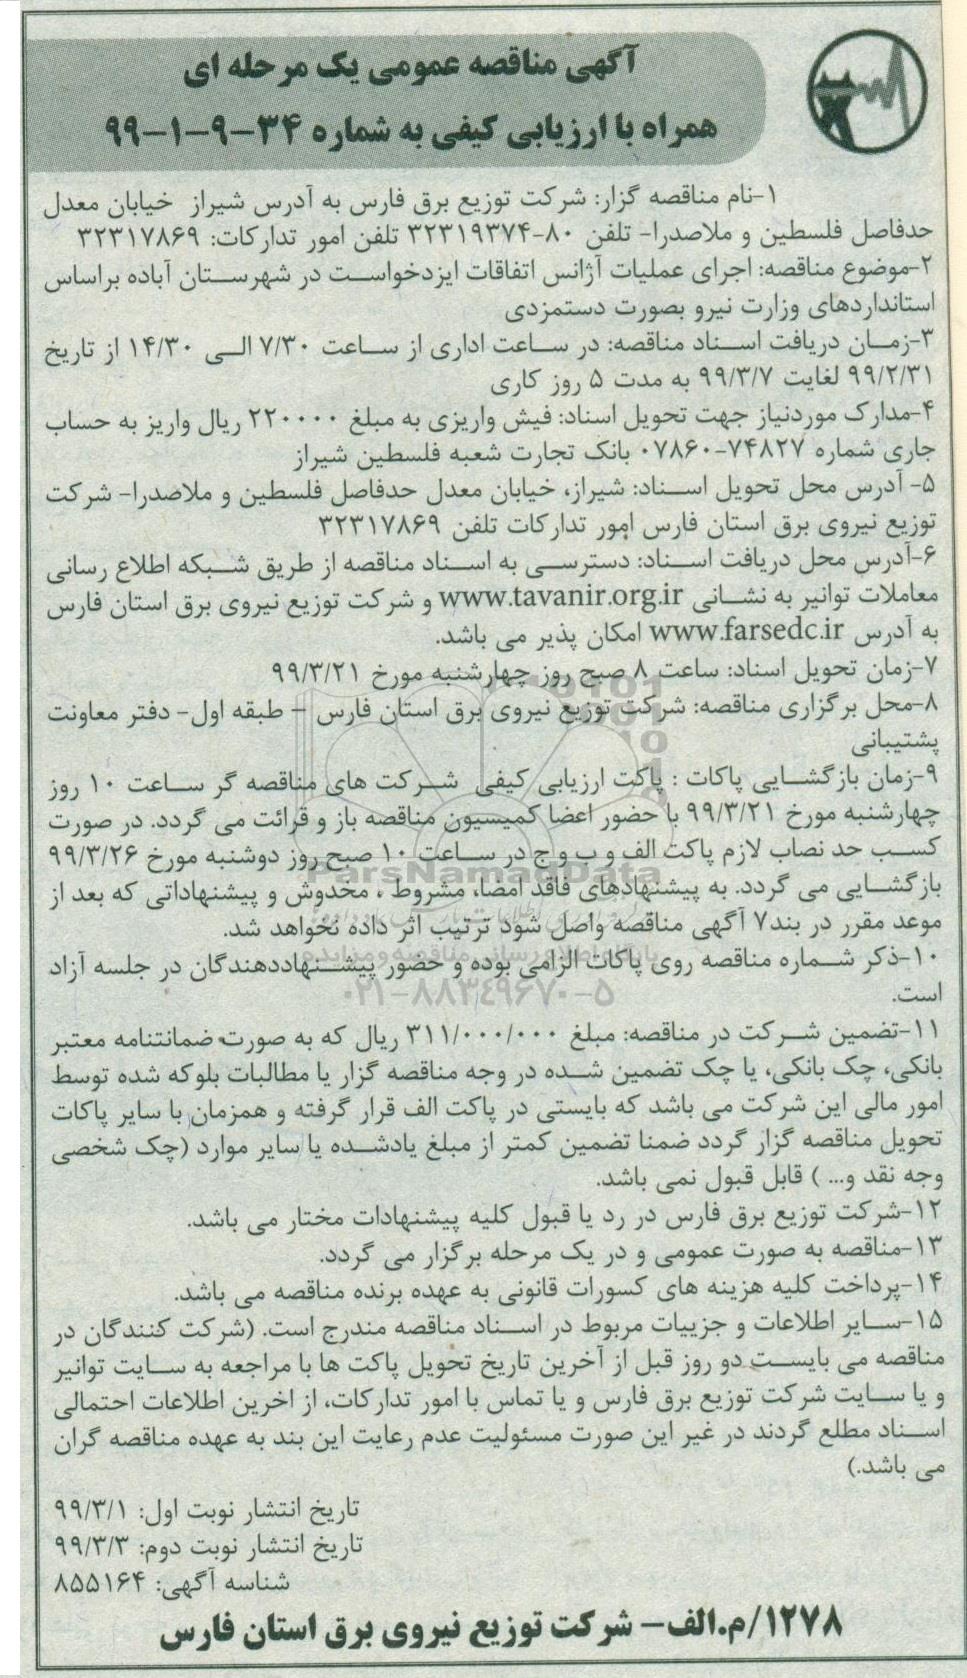 آگهی مناقصه عمومی یک مرحله ای
همراه با ارزیابی کیفی به شماره ۳۴-۹-۱-۹۹
۱-نام مناقصه گزار: شرکت توزیع برق فارس به آدرس شیراز خیابان معدل
حدفاصل فلسطین و ملاصدرا- تلفن ۸۰-۳۲۳۱۹۳۷۴ تلفن امور تدارکات: ۳۲۳۱۷۸۶۹
۲-موضوع مناقصه: اجرای عملیات آژانس اتفاقات ایزدخواست در شهرستان آباده براساس
استانداردهای وزارت نیرو بصورت دستمزدی
۳-زمان دریافت اسناد مناقصه: در ساعت اداری از ساعت ۷/۳۰ الی ۱۴/۳۰ از تاریخ
۹۹/۲/۳۱ لغایت ۹۹/۳/۷ به مدت ۵ روز کاری
۴-مدارک موردنیاز جهت تحویل اسناد: فیش واریزی به مبلغ ۲۲۰۰۰۰ ریال واریز به حساب
جاری شماره ۷۴۸۲۷-۰۷۸۶۰ بانک تجارت شعبه فلسطین شیراز
۵- آدرس محل تحویل اسناد: شیراز، خیابان معدل حدفاصل فلسطین و ملاصدرا- شرکت
توزیع نیروی برق استان فارس امور تدارکات تلفن ۳۲۳۱۷۸۶۹
۶-آدرس محل دریافت اسناد: دسترسی به اسناد مناقصه از طریق شبکه اطلاع رسانی
معاملات توانیر به نشانی www.tavanir.org.ir و شرکت توزیع نیروی برق استان فارس
به آدرس www.farsedc.ir امکان پذیر می باشد.
۷-زمان تحویل اسناد: ساعت ۸ صبح روز چهارشنبه مورخ ۹۹/۳/۲۱
۸-محل برگزاری مناقصه: شرکت توزیع نیروی برق استان فارس – طبقه اول- دفتر معاونت
پشتیبانی
۹-زمان بازگشایی پاکات : پاکت ارزیابی کیفی شرکت های مناقصه گر ساعت ۱۰ روز
چهارشنبه مورخ ۹۹/۳/۲۱ با حضور اعضا کمیسیون مناقصه باز و قرائت می گردد. در صورت
کسب حد نصاب لازم پاکت الف و ب و ج در ساعت ۱۰ صبح روز دوشنبه مورخ ۹۹/۳/۲۶
بازگشایی می گردد. به پیشنهادهای فاقد امضا، مشروط ، مخدوش و پیشنهاداتی که بعد از
موعد مقرر در بند۷ آگهی مناقصه واصل شود ترتیب اثر داده نخواهد شد.
۱۰-ذکر شماره مناقصه روی پاکات الزامی بوده و حضور پیشنهاددهندگان در جلسه آزاد
است.
۱۱-تضمین شرکت در مناقصه: مبلغ ۳۱۱/۰۰۰/۰۰۰ ریال که به صورت ضمانتنامه معتبر
بانکی، چک بانکی، یا چک تضمین شده در وجه مناقصه گزار یا مطالبات بلوکه شده توسط
امور مالی این شرکت می باشد که بایستی در پاکت الف قرار گرفته و همزمان با سایر پاکات
تحویل مناقصه گزار گردد ضمنا تضمین کمتر از مبلغ یادشده یا سایر موارد (چک شخصی
وجه نقد و... ) قابل قبول نمی باشد.
۱۲-شرکت توزیع برق فارس در رد یا قبول کلیه پیشنهادات مختار می باشد.
۱۳-مناقصه به صورت عمومی و در یک مرحله برگزار می گردد.
۱۴-پرداخت کلیه هزینه های کسورات قانونی به عهده برنده مناقصه می باشد.
۱۵-سایر اطلاعات و جزییات مربوط در اسناد مناقصه مندرج است. (شرکت کنندگان در
مناقصه می بایست دو روز قبل از آخرین تاریخ تحویل پاکت ها با مراجعه به سایت توانیر
و یا سایت شرکت توزیع برق فارس و یا تماس با امور تدارکات، از اخرین اطلاعات احتمالی
اسناد مطلع گردند در غیر این صورت مسئولیت عدم رعایت این بند به عهده مناقصه گران
می باشد.)
تاریخ انتشار نوبت اول: ۹۹/۳/۱
تاریخ انتشار نوبت دوم: ۹۹/۳/۳
شناسه آگهی: ۸۵۵۱۶۴
۱۲۷۸/م.الف- شرکت توزیع نیروی برق استان فارس
ParsNamadData
۰۲۱-۸۸۳۴۹۶۷۰-۵